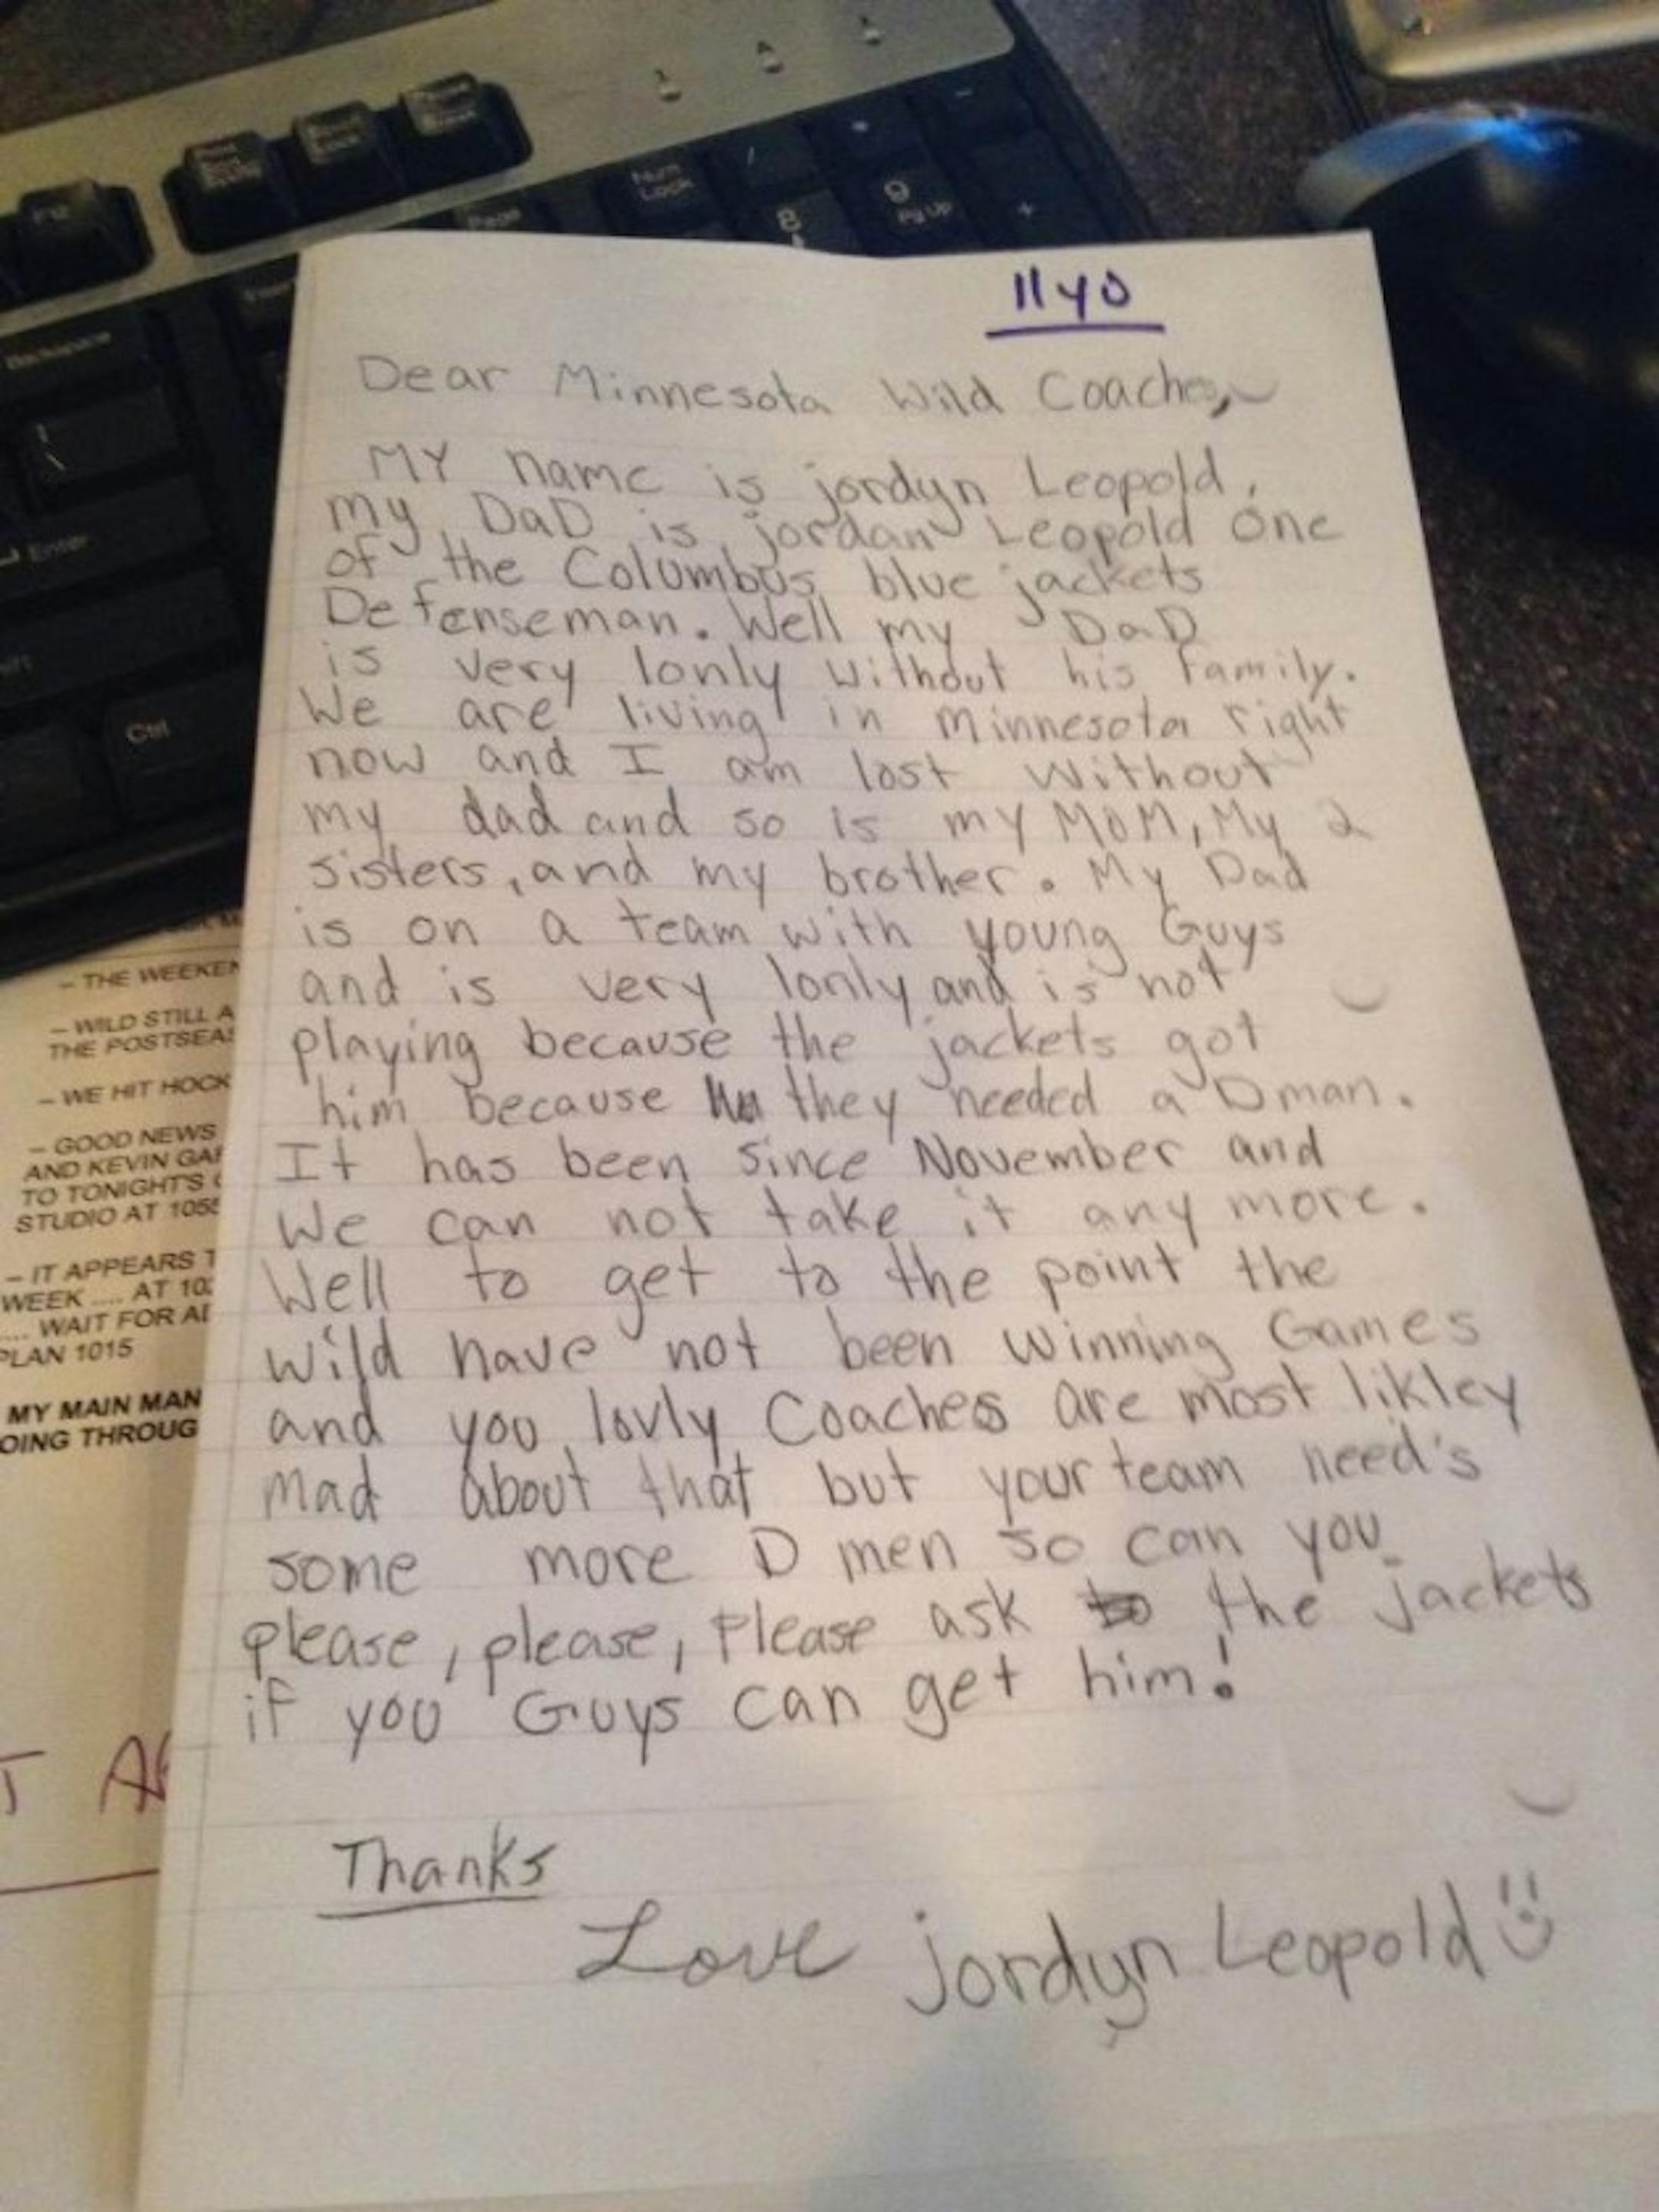 Num
Lock
/
*
-
8
9
Pg Up
+
F12
Page
Backspace
\
Enter
Ctrl
11 yo
Dear Minnesota Wild Coaches,
MY name is jordyn Leopold,
my DaD is jordan Leopold one
of the Columbus blue jackets
Defenseman. Well my DaD
is very lonly without his family.
We are living in minnesota right
now and I am lost without
my dad and so is my MOM, My 2
sisters, and my brother. My Dad
is on a team with young Guys
and is very lonly and is not
playing because the jackets got
him because they needed a Dman.
It has been since November and
We can not take it any more.
Well to get to the point the
wild have not been winning Games
and you lovly Coaches are most likley
mad about that but your team need's
some more D men so can you
please, please, Please ask to the jackets
if you Guys can get him!
Thanks
Love jordyn Leopold
– THE WEEKEN
– WILD STILL A
THE POSTSEAS
– WE HIT HOCK
– GOOD NEWS
AND KEVIN GAR
TO TONIGHT'S
STUDIO AT 1055
– IT APPEARS T
WEEK .... AT 10
.... WAIT FOR AD
PLAN 1015
MY MAIN MAN
OING THROUG